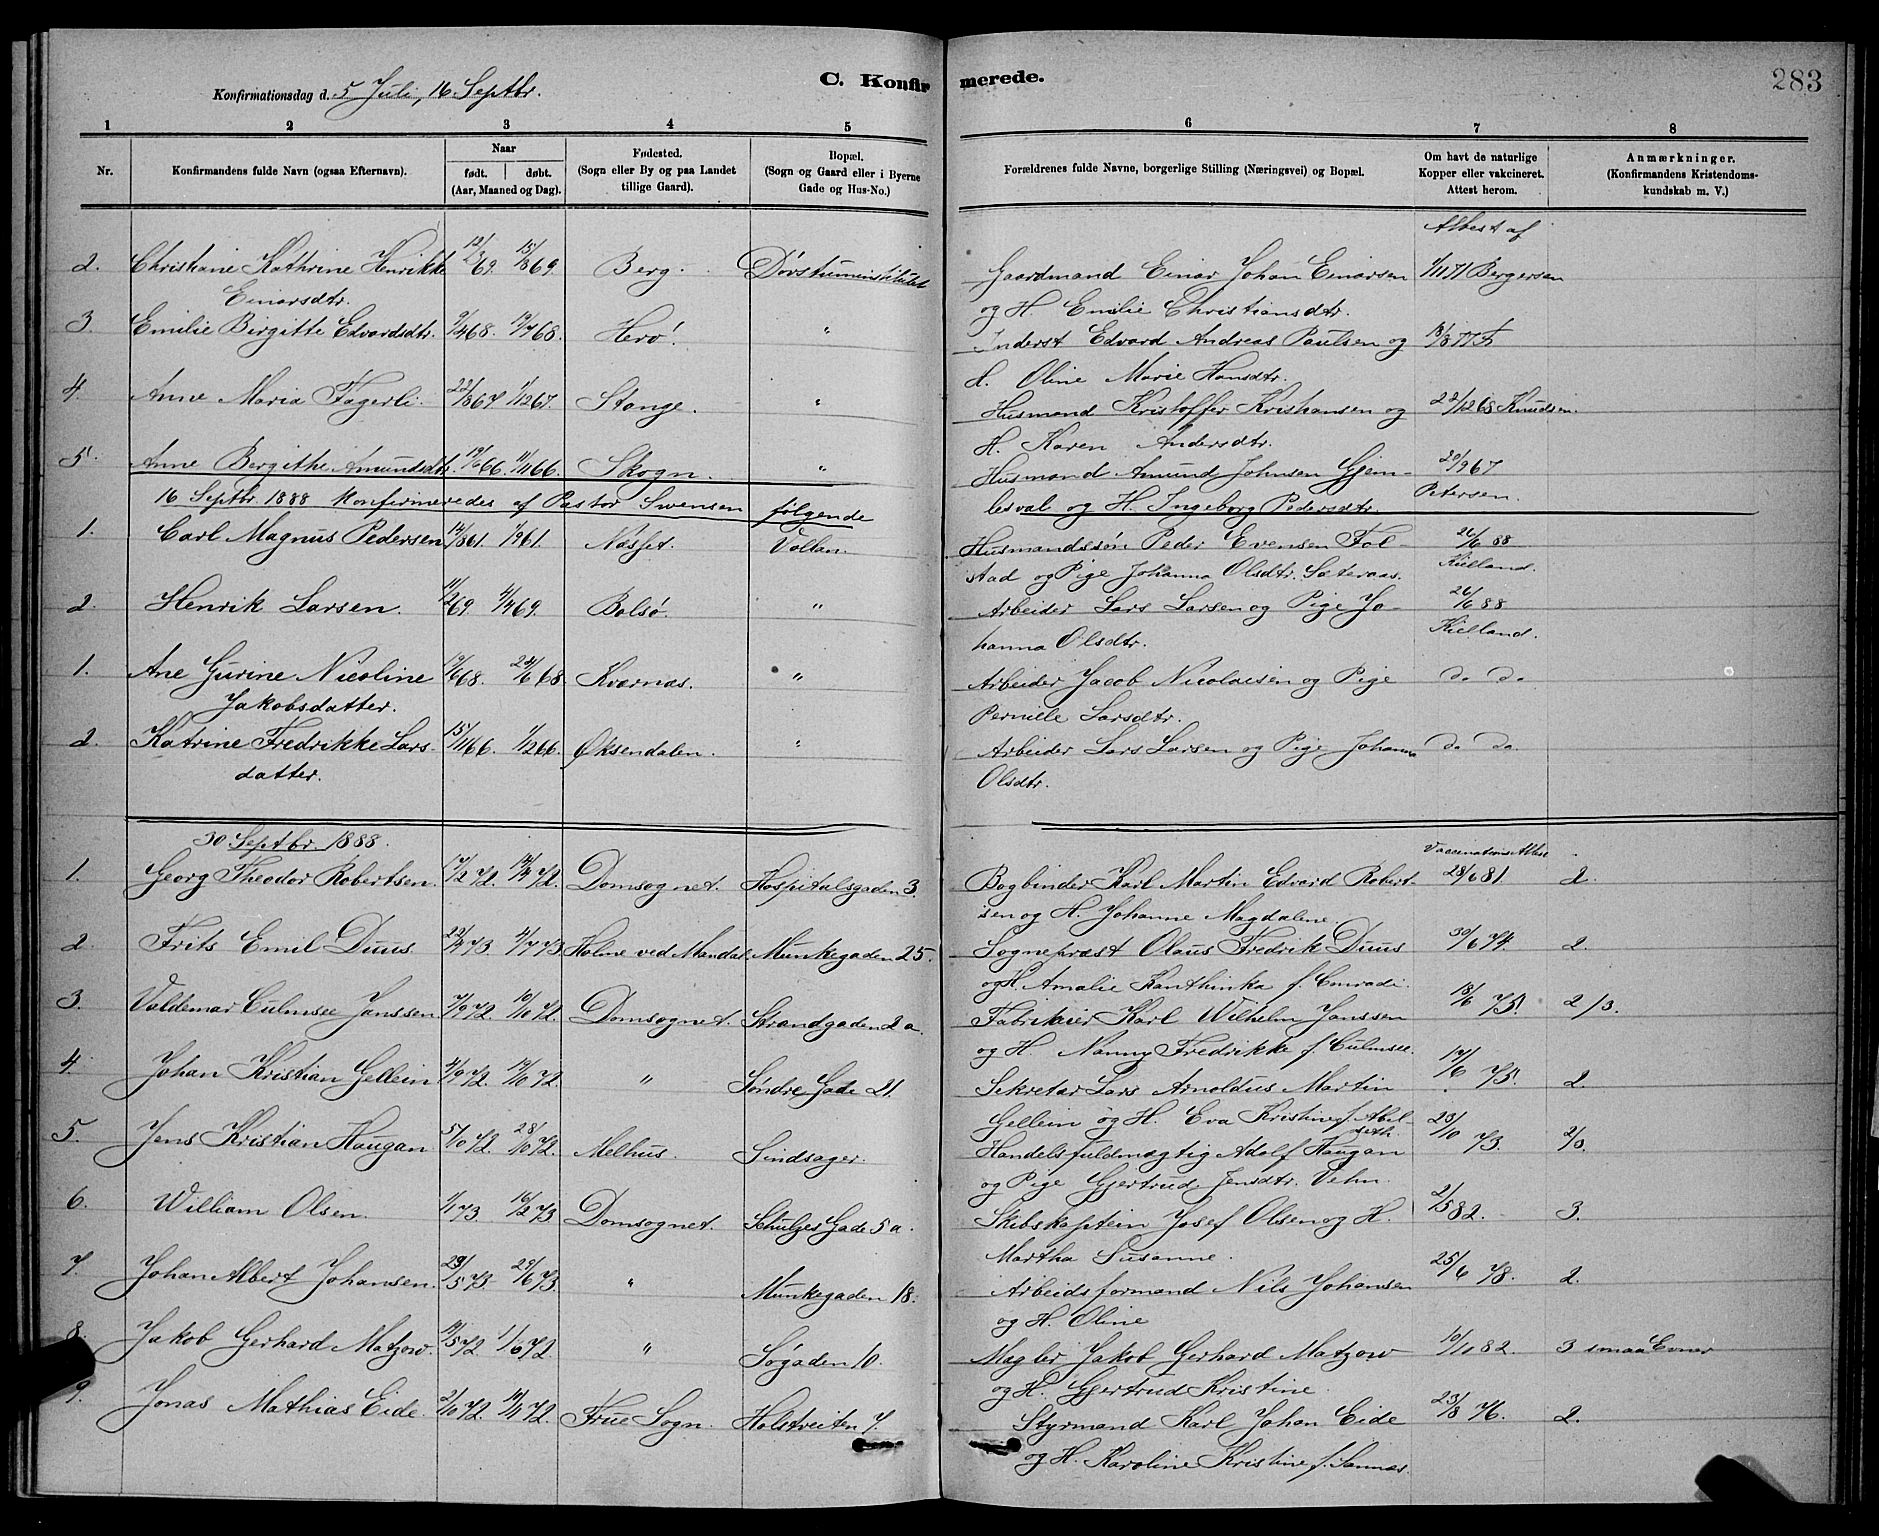 Konfirmationsdag d. 5 Juli, 16 Septbr. C. Konfirmerede. 283
1 2 3 4 5 6 7 8
Nr. Konfirmandens fulde Navn (ogsaa Efternavn). Naar født. døbt. (Aar, Maaned og Dag). Fødested. (Sogn eller By og paa Landet tillige Gaard). Bopæl. (Sogn og Gaard eller i Byerne Gade og Hus-No.) Forældrenes fulde Navne, borgerlige Stilling (Næringsvei) og Bopæl. Om havt de naturlige Kopper eller vakcineret. Attest herom. Anmærkninger. (Konfirmandens Kristendomskundskab m. V.)
Attest af
2. Christiane Kathrine Henrikke 69. 15/8 69. Berg. Døvstumeinstitutet Gaardmand Einar Johan Einarsen Bergersen
Einarsdtr. og H. Emilie Christiansdtr.
3. Emilie Birgitte Edvardsdtr. 9/4 68. 12/7 68. Herø. " Inderst Edvard Andreas Paulsen og
H. Oline Marie Hansdtr.
4. Anne Maria Fagerli. 22/8 67 1/12 67. Stange. " Husmand Kristoffer Kristiansen og 22/12 68 Knudsen.
H. Karen Andersdtr.
5. Anne Bergithe Amundsdtr. 66 11/4 66. Skogn. " Husmand Amund Johnsen Gjem- 20/9 67
16 Septbr. 1888 konfirmeredes af Pastor Svensen følgende lesval og H. Ingeborg Pedersdtr. Petersen.
1. Carl Magnus Pedersen 14/8 61. 1/9 61. Næsset. Vollan. Husmandssøn Peder Evensen Fol- 26/6 88
stad og Pige Johanna Olsdtr. Sæteraas. Kielland.
2. Henrik Larsen. 11/2 69. 4/4 69. Bolsø. " Arbeider Lars Larsen og Pige Jo- 26/6 88
hanna Olsdtr. Kielland.
1. Ane Gurine Nicoline 68. 24/6 68. Kværnæs. " Arbeider Jacob Nicolaisen og Pige do do
Jakobsdatter. Pernille Larsdtr.
2. Katrine Fredrikke Lars- 15/11 66. 1/12 66. Øksendalen. " Arbeider Lars Larsen og Pige Johanna do do.
datter. Olsdtr.
30 Septbr. 1888. Vaccenations Attest
1. Georg Theodor Robertsen. 17/2 72. 14/4 72. Domsognet. Hospitalsgaden 3. Bogbinder Karl Martin Edvard Robert- 28/6 81. 2.
sen og H. Johanne Magdalene.
2. Frits Emil Duus. 22/4 73 4/7 73 Holme ved Mandal Munkegaden 25. Sognepræst Olaus Fredrik Duus 30/6 74. 2.
og H. Amalie Kanthinka f. Conradi.
3. Valdemar Culmsee Janssen 7/9 72. 10/10 72. Domsognet. Strandgaden 2 a. Fabrikeier Karl Wilhelm Janssen 18/6 75. 2/3.
og H. Nanny Fredrikke f. Culmsee.
4. Johan Kristian Gellein 4/9 72. 19/10 72. " Søndre Gade 21. Sekretær Lars Arnoldus Martin 17/6 75. 2.
Gellein og H. Eva Kristine f. Abel-
seth.
5. Jens Kristian Haugan 5/10 72. 28/10 72. Melhus. Sindsager. Handelsfuldmægtig Adolf Haugan 23/10 73. 2/3.
og Pige Gjertrud Jensdtr. Vehn.
6. William Olsen. 1/1 73. 16/2 73 Domsognet. Schulzes Gade 5 a. Skibskaptein Josef Olsen og H. 2/5 82. 3.
Martha Susanne.
7. Johan Albert Johansen. 23/5 73. 29/6 73. " Munkegaden 18. Arbeidsformand Nils Johansen 25/6 78. 2.
og H. Oline
8. Jakob Gerhard Matzow. 14/5 72. 1/6 72. " Søgaden 10. Mægler Jakob Gerhard Matzow 10/10 82. 3 smaa Evner
og H. Gjertrud Kristine.
9. Jonas Mathias Eide. 2/10 72. 14/11 72. Frue Sogn. Holstveiten 7. Styrmand Karl Johan Eide 23/8 76. 2.
og H. Karoline Kristine f. Sannæs.